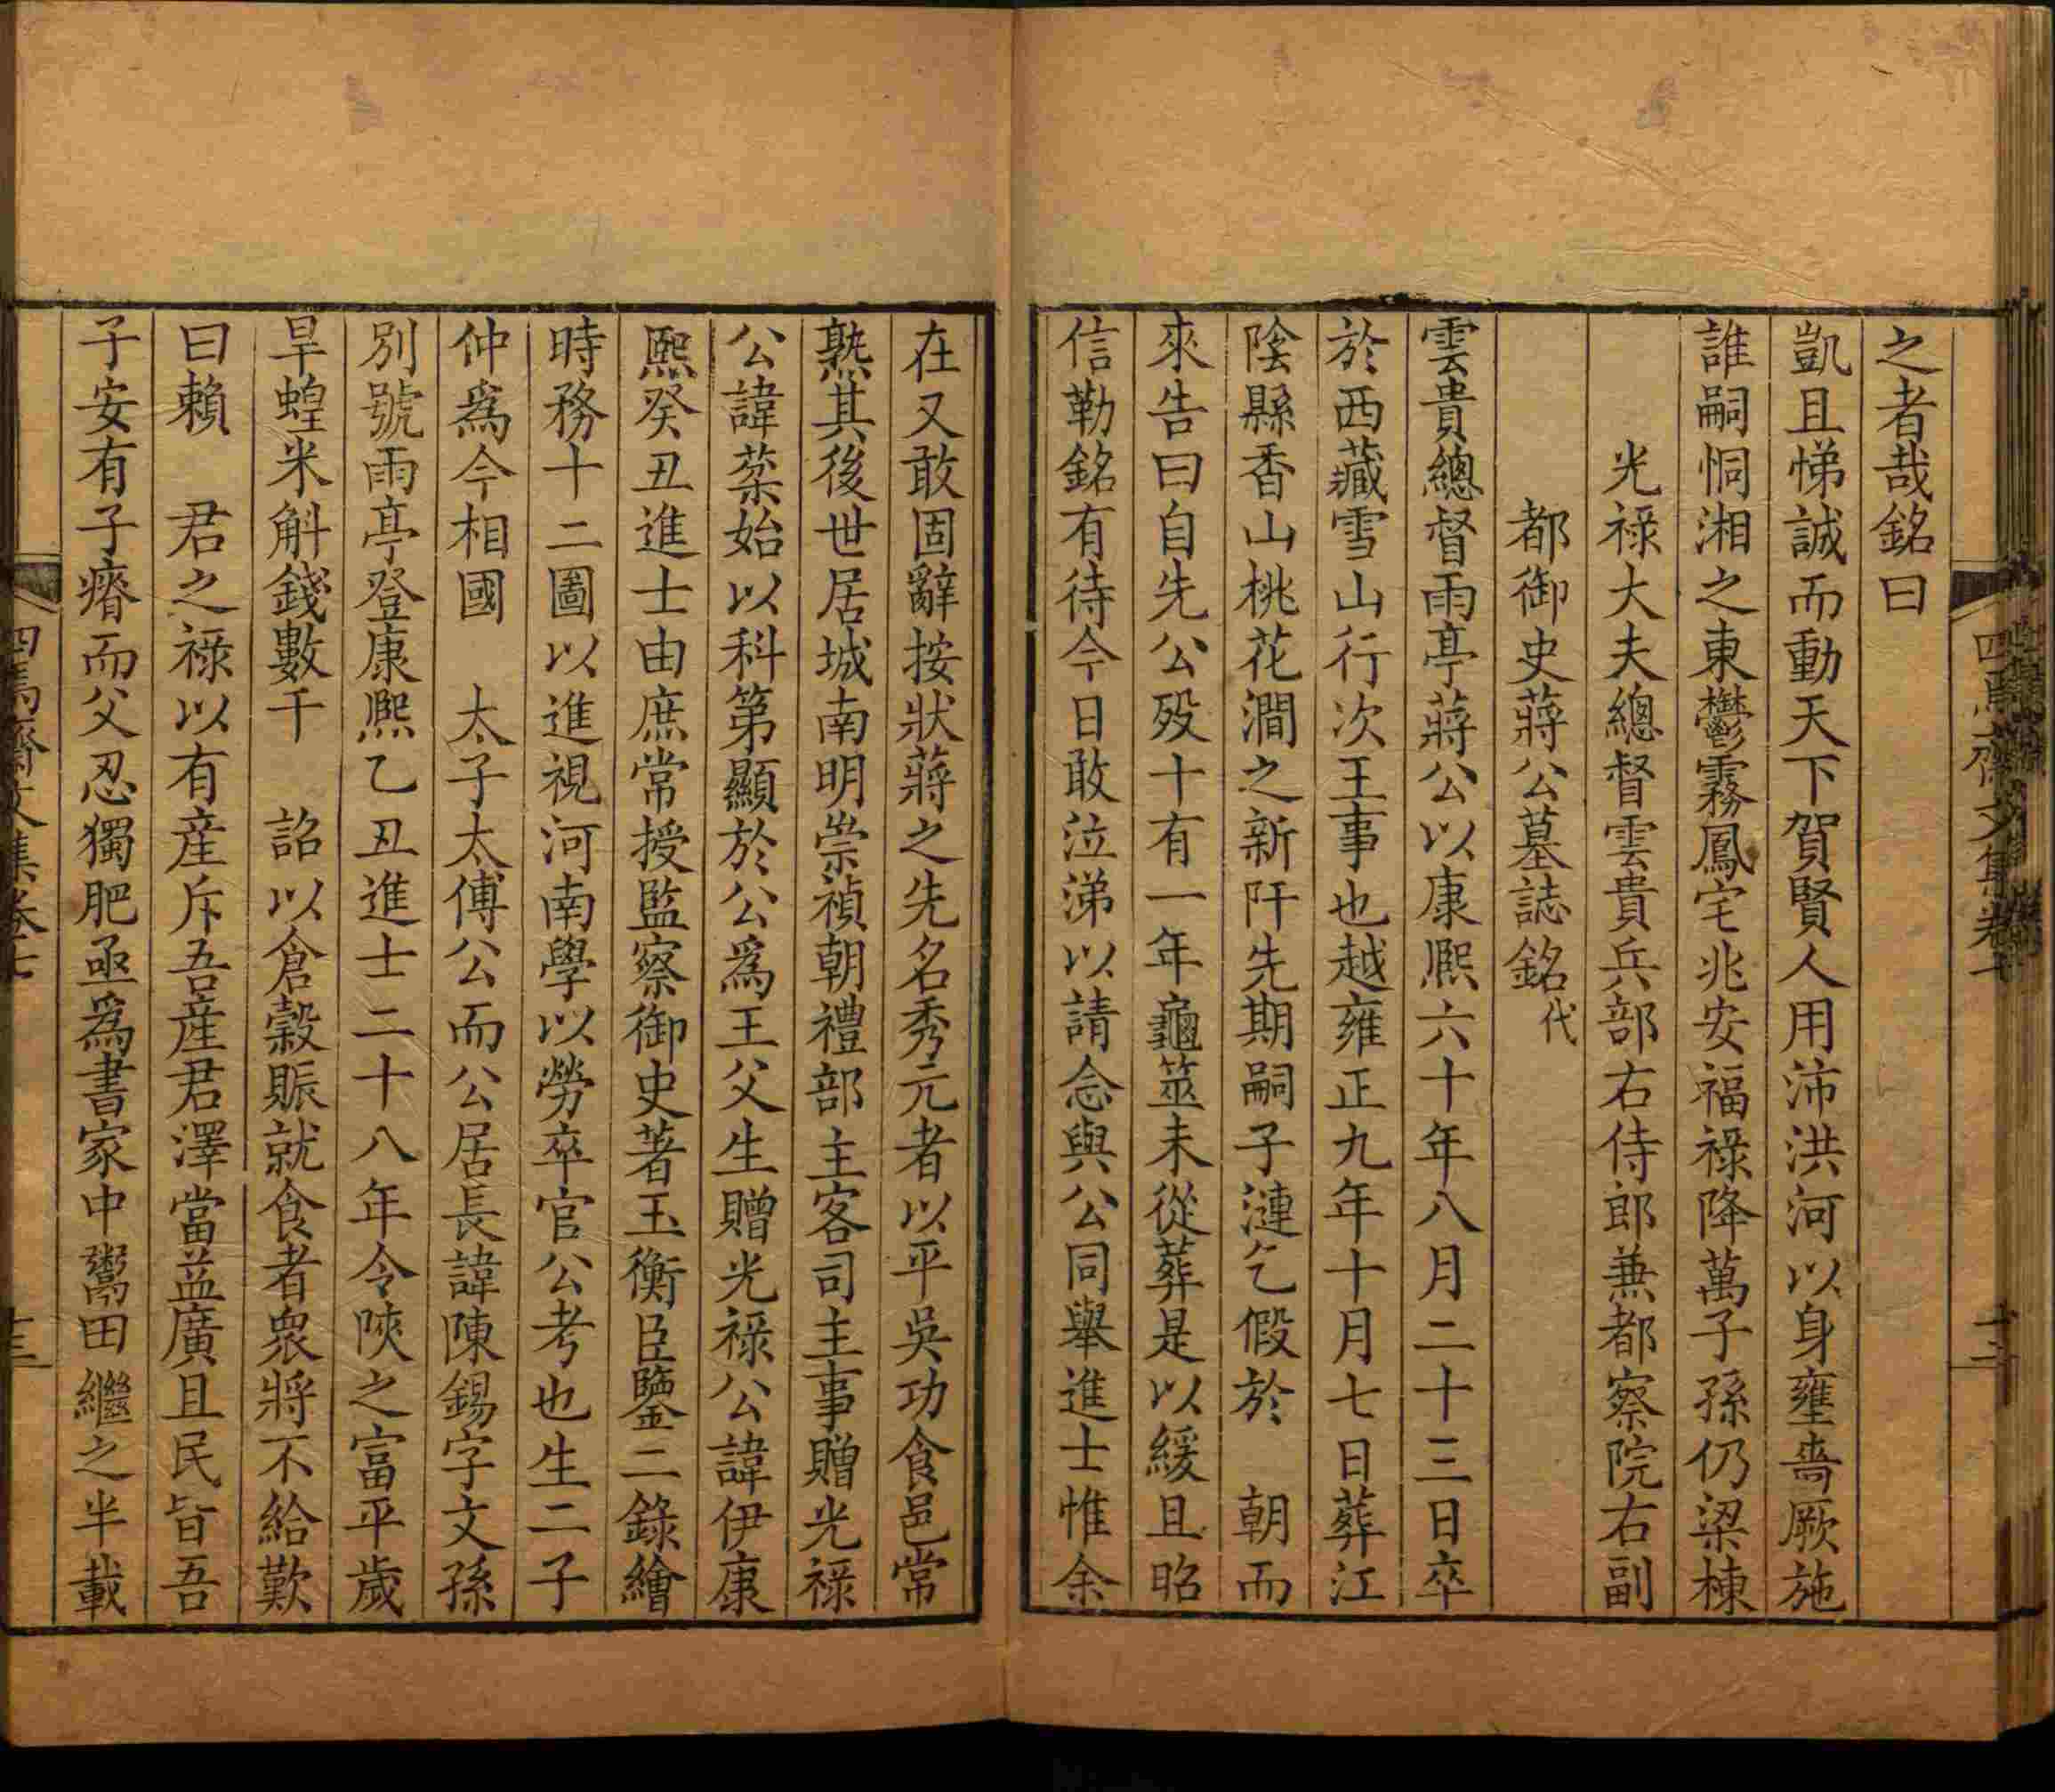 之者哉銘曰
凱且悌誠而動天下賀賢人用沛洪河以身壅嗇厥施
誰嗣恫湘之東鬱霧鳳宅兆安福祿降萬子孫仍梁棟
光祿大夫總督雲貴兵部右侍郎兼都察院右副
都御史蔣公墓誌銘代
雲貴總督雨亭蔣公以康熙六十年八月二十三日卒
於西藏雪山行次王事也越雍正九年十月七日葬江
陰縣香山桃花澗之新阡先期嗣子漣乞假於　朝而
來告曰自先公歿十有一年龜筮未從葬是以緩且昭
信勒銘有待今日敢泣涕以請念與公同舉進士惟余
在又敢固辭按狀蔣之先名秀元者以平吳功食邑常
熟其後世居城南明崇禎朝禮部主客司主事贈光祿
公諱棻始以科第顯於公爲王父生贈光祿公諱伊康
熙癸丑進士由庶常授監察御史著玉衡臣鑒二錄繪
時務十二圖以進視河南學以勞卒官公考也生二子
仲爲今相國　太子太傅公而公居長諱陳錫字文孫
別號雨亭登康熙乙丑進士二十八年令陝之富平歲
旱蝗米斛錢數千　詔以倉穀賑就食者衆將不給歎
曰賴　君之祿以有産斥吾産君澤當益廣且民皆吾
子安有子瘠而父忍獨肥亟爲書家中鬻田繼之半載
四焉齋文集卷七
十三